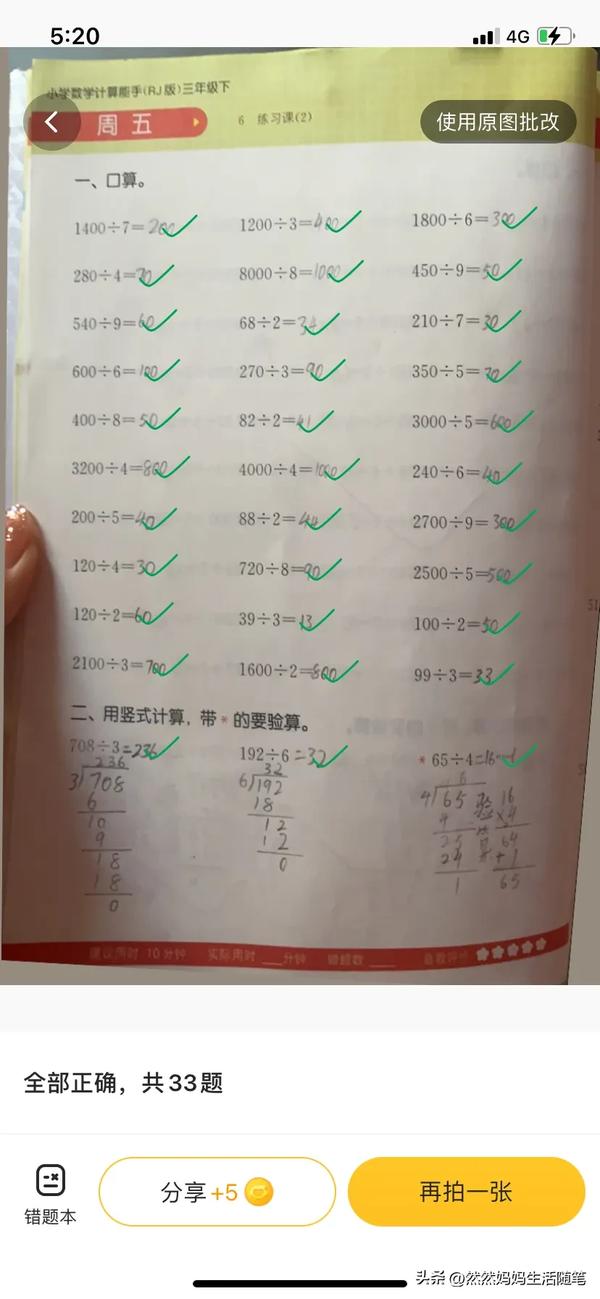 5:20 4G
小学数学计算能手(RJ版)三年级下
周五 6 练习课(2) 使用原图批改
一、口算。
1400÷7=200 1200÷3=400 1800÷6=300
280÷4=70 8000÷8=1000 450÷9=50
540÷9=60 68÷2=34 210÷7=30
600÷6=100 270÷3=90 350÷5=70
400÷8=50 82÷2=41 3000÷5=600
3200÷4=800 4000÷4=1000 240÷6=40
200÷5=40 88÷2=44 2700÷9=300
120÷4=30 720÷8=90 2500÷5=500
120÷2=60 39÷3=13 100÷2=50
2100÷3=700 1600÷2=800 99÷3=33
二、用竖式计算，带*的要验算。
708÷3=236 192÷6=32 *65÷4=16…1
236 32 6
3)708 6)192 4)65 验 16
6 18 4 ×4
10 12 25 算 64
9 12 24 +1
18 0 1 65
18
0
建议用时 10分钟 实际用时 ___分钟 错题数 ___
全部正确，共33题
错题本 分享+5 再拍一张
头条 @然然妈妈生活随笔